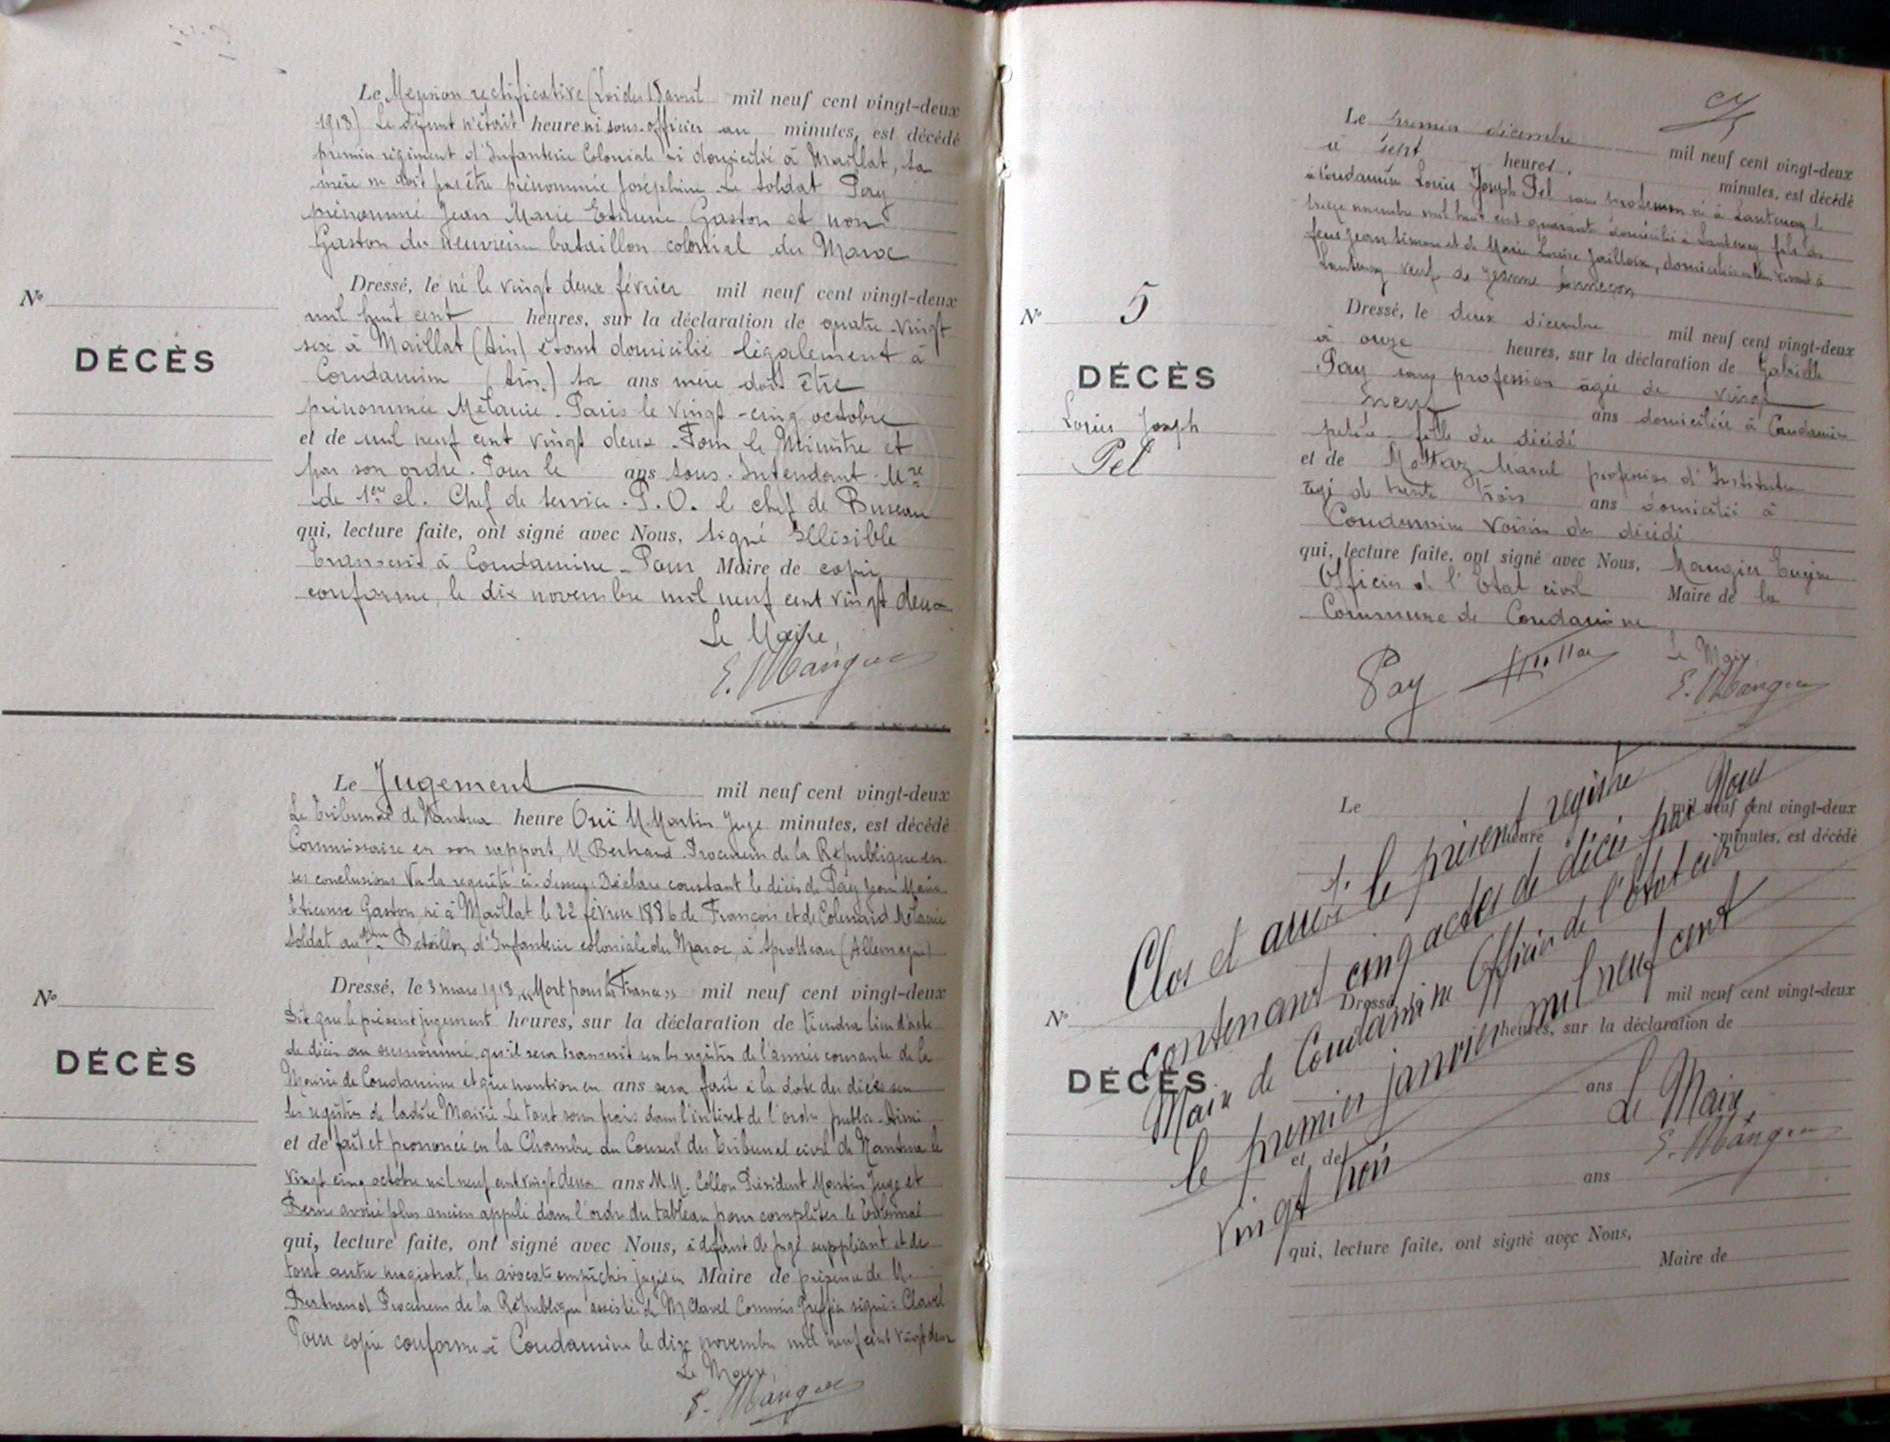 Le Mention rectificative (Loi du 18 avril mil neuf cent vingt-deux
1918) Le défunt n'était heure ni sous-officier au minutes, est décédé
premier régiment d'Infanterie Coloniale ni domicilié à Maillat, sa
mère ne doit pas être prénommée Joséphine. Le soldat Pay
prénommé Jean Marie Etienne Gaston et non
Gaston du neuvième bataillon colonial du Maroc
Dressé, le né le vingt deux février mil neuf cent vingt-deux
mil huit cent heures, sur la déclaration de quatre-vingt
six à Maillat (Ain) étant domicilié légalement à
Condamine (Ain.) sa ans mère doit être
prénommée Mélanie. Paris le vingt-cinq octobre
et de mil neuf cent vingt deux. Pour le Ministre et
par son ordre. Pour le ans Sous-Intendant Mre
de 1ère cl. Chef de Service. P.O. le chef de Bureau
qui, lecture faite, ont signé avec Nous, signé Illisible
Transcrit à Condamine. Pour Maire de copie
conforme, le dix novembre mil neuf cent vingt deux
Le Maire,
E. Mangier
No
DÉCÈS
Le Jugement mil neuf cent vingt-deux
Le Tribunal de Nantua heure Ouï M. Martin Juge minutes, est décédé
Commissaire en son rapport, M Bertrand Procureur de la République en
ses conclusions Vu la requête ci-dessus Déclare constant le décès de Pay Jean Marie
Etienne Gaston né à Maillat le 22 février 1886 de François et de Mélanie
Soldat au Bataillon d'Infanterie coloniale du Maroc, à Sprottau (Allemagne)
Dressé, le 3 mars 1918 "Mort pour la France" mil neuf cent vingt-deux
Dit que le présent jugement heures, sur la déclaration de tiendra lieu d'acte
de décès au susnommé, qu'il sera transcrit sur les registres de l'année courante de la
Mairie de Condamine et que mention en ans sera faite à la date du décès sur
les registres de ladite Mairie Le tout sans frais dans l'intérêt de l'ordre public. Ainsi
et de fait et prononcé en la Chambre du Conseil du Tribunal civil de Nantua le
vingt cinq octobre mil neuf cent vingt deux ans M.M. Collon Président Martin Juge et
avoué plus ancien appelé dans l'ordre du tableau pour compléter le Tribunal
qui, lecture faite, ont signé avec Nous, à défaut de Juge suppléant et de
tout autre magistrat, les avocats empêchés Maire de présence de M.
Bertrand Procureur de la République assisté de M Clavel Commis Greffier signé: Clavel
Pour copie conforme à Condamine le dix novembre mil neuf cent vingt deux
Le Maire,
E. Mangier
No
DÉCÈS
Le premier décembre mil neuf cent vingt-deux
à sept heures, minutes, est décédé
à Condamine Louis Joseph Pel sans profession né à Lantenay le
treize novembre mil huit cent quarante domicilié à Lantenay fils de
feus Jean Simon et de Marie Louise Jailloux, domiciliés de leur vivant à
Lantenay veuf de
Dressé, le deux décembre mil neuf cent vingt-deux
à onze heures, sur la déclaration de Gabrielle
Pay sans profession âgée de vingt
neuf ans domiciliée à Condamine
petite fille du décédé
et de Mottaz Marcel profession d'Instituteur
âgé de trente trois ans domicilié à
Condamine voisin du décédé
qui, lecture faite, ont signé avec Nous, Mangier Eugène
Officier de l'Etat civil Maire de la
Commune de Condamine
Le Maire,
Pay Mottaz E. Mangier
No 5
DÉCÈS
Louis Joseph
Pel
Le mil neuf cent vingt-deux
heure minutes, est décédé
Clos et arrêté le présent registre
contenant cinq actes de décès par Nous
Maire de Condamine Officier de l'état civil
le premier janvier mil neuf cent
vingt trois
Le Maire,
E. Mangier
No
DÉCÈS
Dressé, le mil neuf cent vingt-deux
heures, sur la déclaration de
ans
et de
ans
qui, lecture faite, ont signé avec Nous,
Maire de